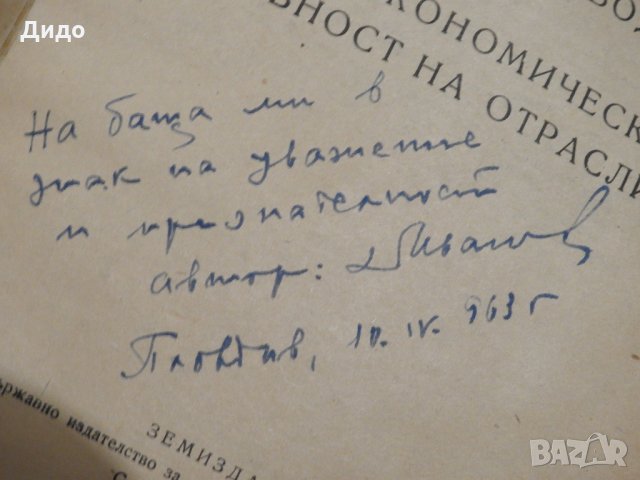 Дидо
ВОД
КОНОМИЧЕСК
ВНОСТ НА ОТРАСЛИ
На баща ми в
знак на уважение
и признателност
автор: Иванов
Пловдив, 10. IV. 963 г
ЗЕМИЗДА
ържавно издателство за
С
BAZAR